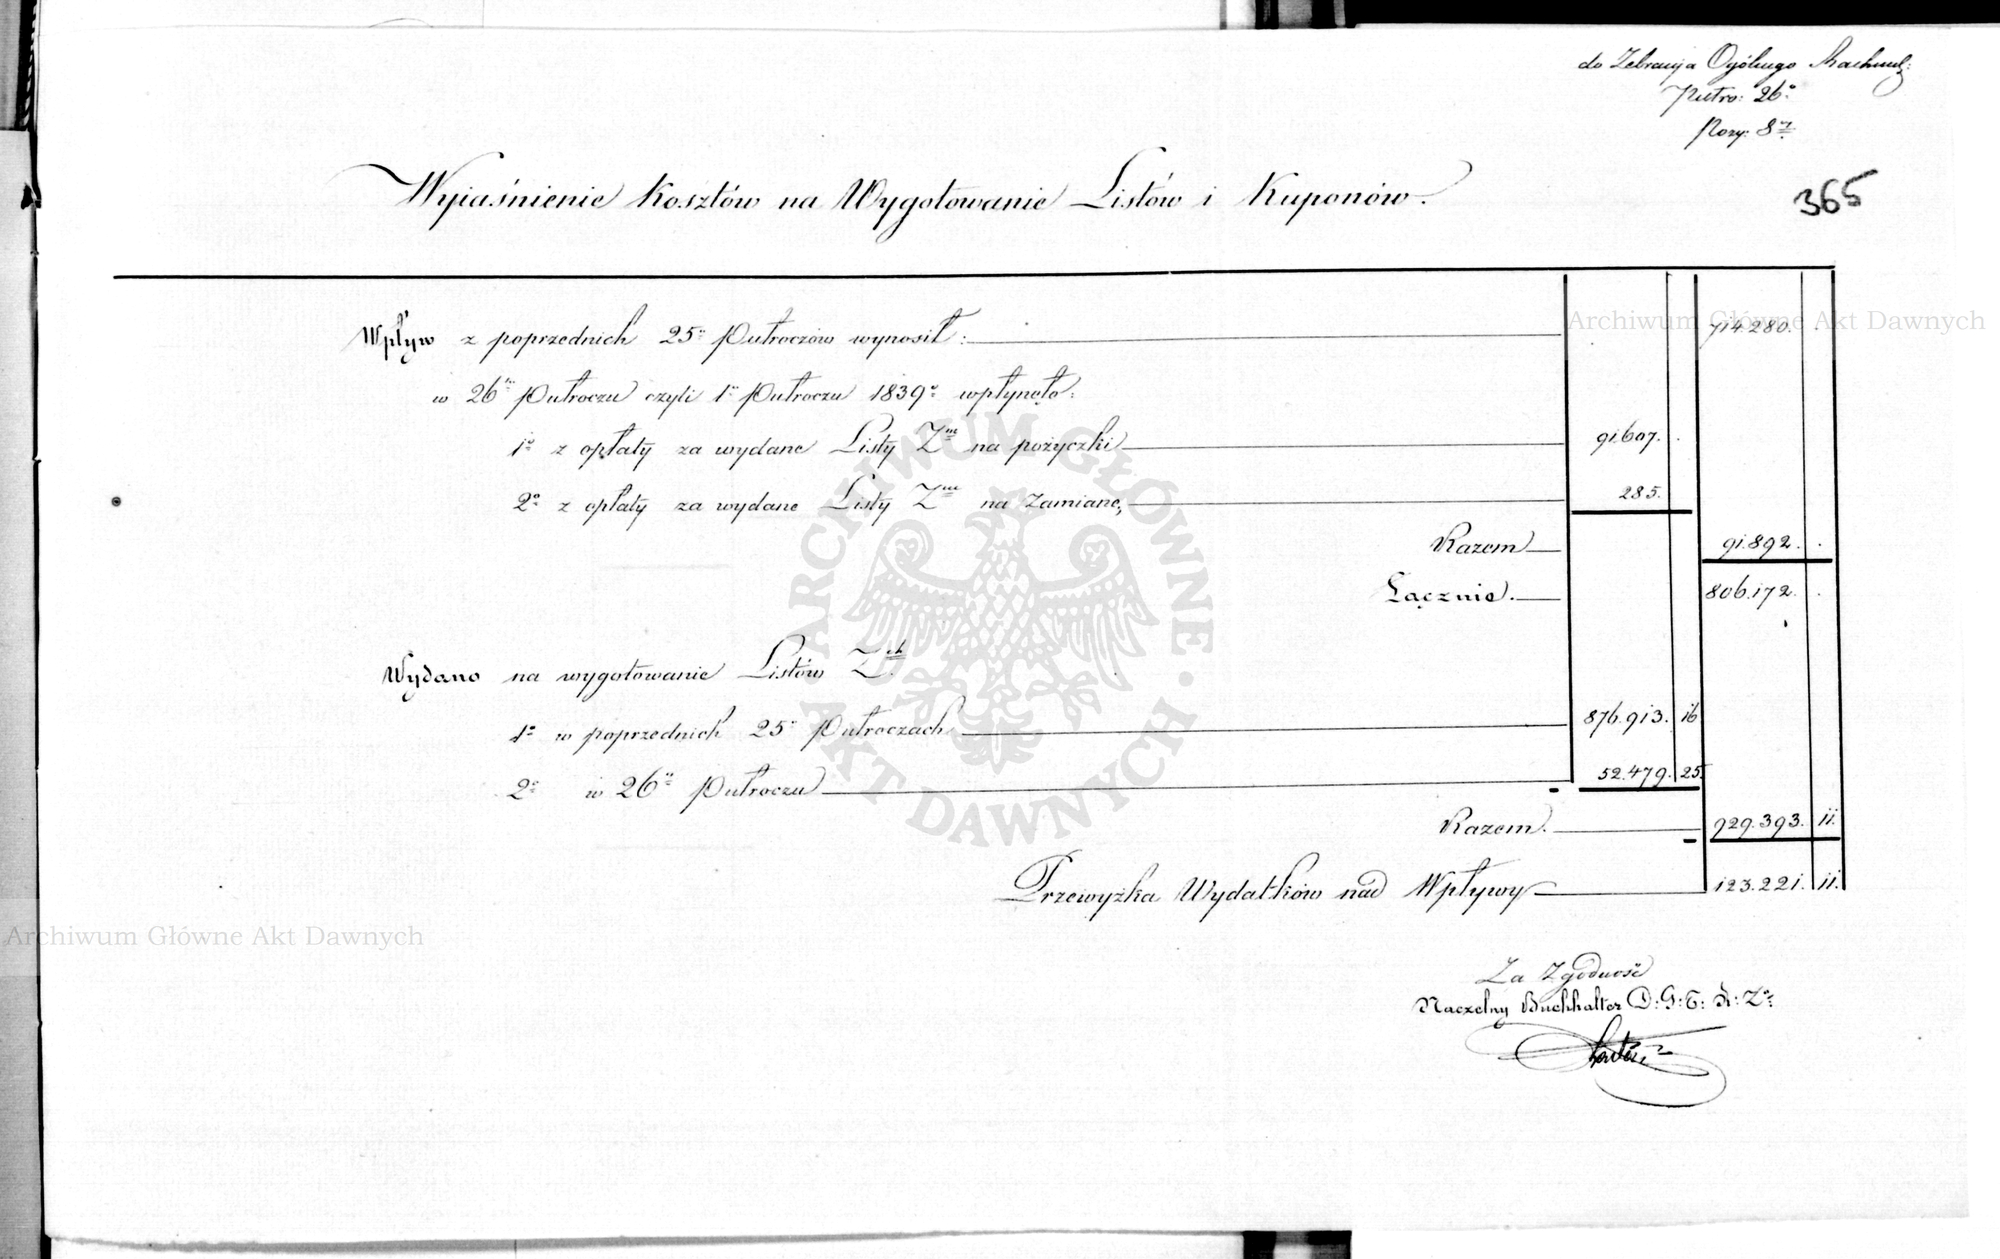 do Zebrania Ogólnego Rachund:
Półro: 26º
Pozy: 8ª
365
Wyjaśnienie Kosztów na Wygotowanie Listów i Kuponów.
Wpływ z poprzednich 25º Półroczów wynosił: 714.280.
w 26m Półroczu czyli 1m Półroczu 1839º wpłynęło:
1º z opłaty za wydane Listy Zne na pożyczki 91.607.
2º z opłaty za wydane Listy Zne na zamianę, 285.
Razem 91.892.
Łącznie. 806.172.
Wydano na wygotowanie Listów Zch
1º w poprzednich 25º Półroczach 876.913. 16
2º w 26m Półroczu 52.479. 25.
Razem. 929.393. 11.
Przewyżka Wydatków nad Wpływy 123.221. 11.
Za Zgodność
Naczelny Buchhalter D: G: T: K: Zº:
Archiwum Główne Akt Dawnych
Archiwum Główne Akt Dawnych
ARCHIWUM GŁÓWNE AKT DAWNYCH